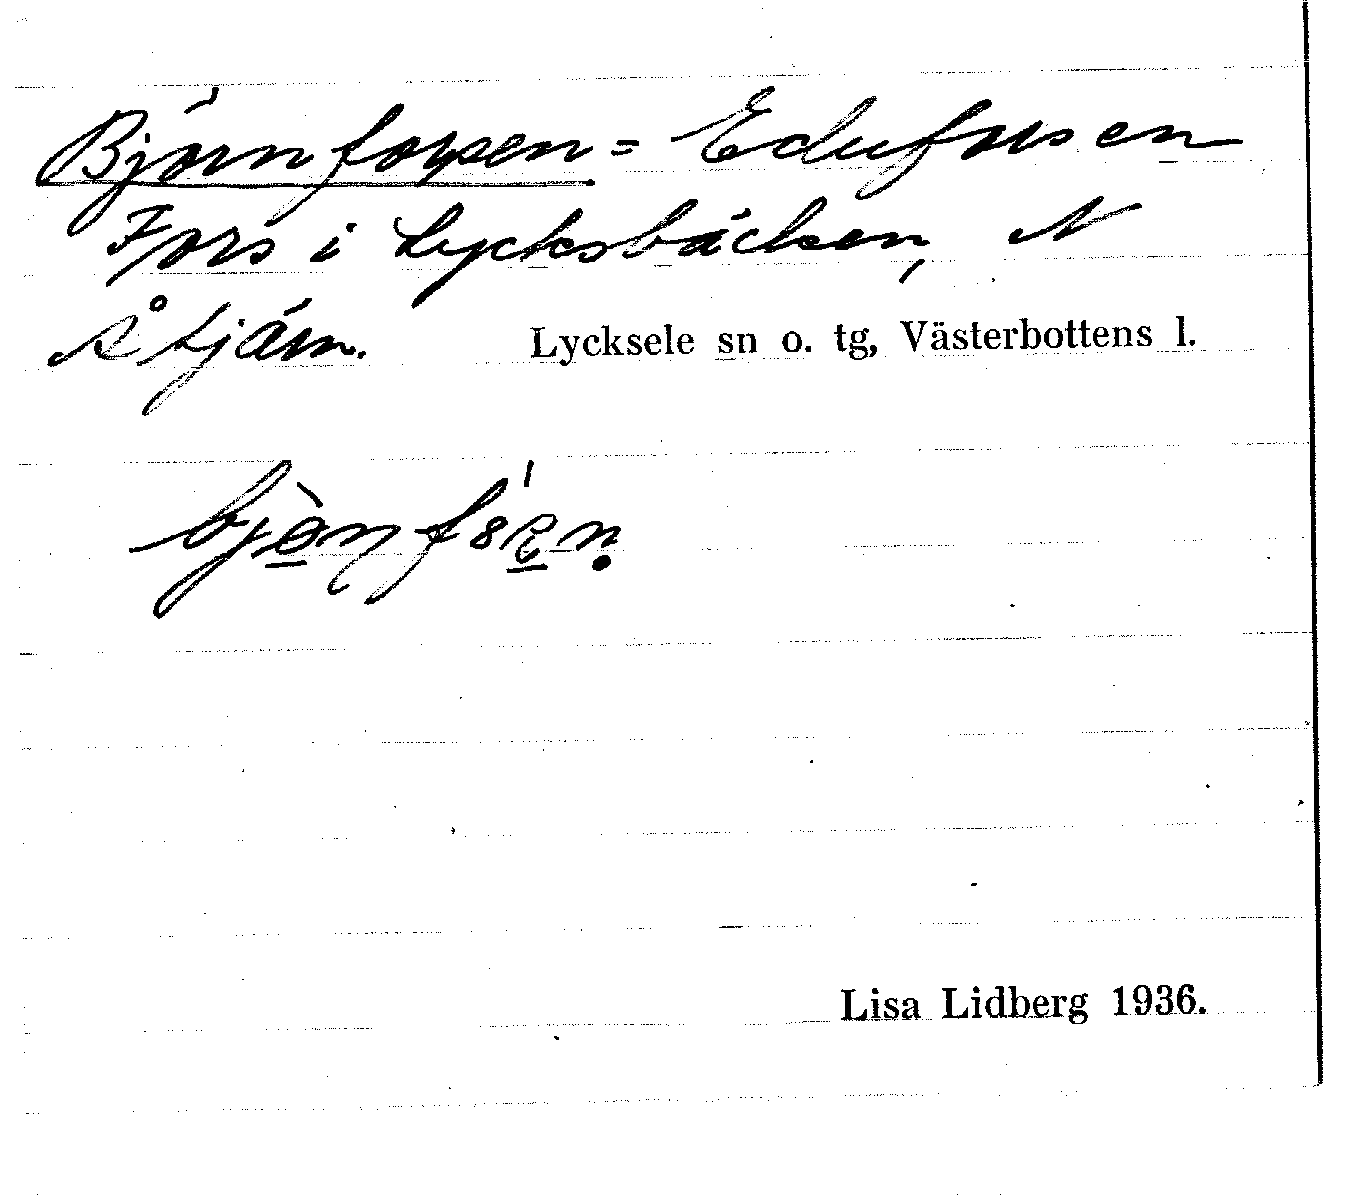 Björnforsen = Edusforsen
Fors i Lycksbäcken, N
Åtjärn. Lycksele sn o. tg, Västerbottens l.
Lisa Lidberg 1936.